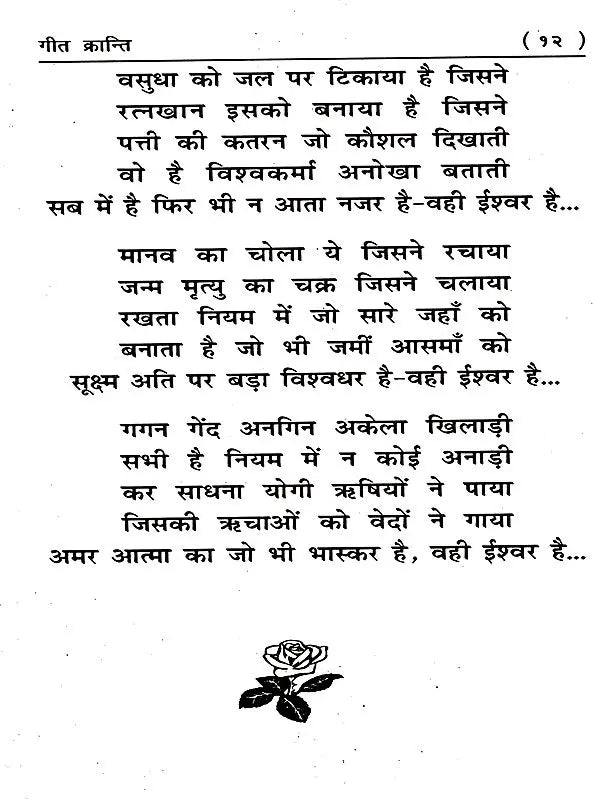 गीत क्रान्ति ( १२ )
वसुधा को जल पर टिकाया है जिसने
रत्नखान इसको बनाया है जिसने
पत्ती की कतरन जो कौशल दिखाती
वो है विश्वकर्मा अनोखा बताती
सब में है फिर भी न आता नजर है-वही ईश्वर है...
मानव का चोला ये जिसने रचाया
जन्म मृत्यु का चक्र जिसने चलाया
रखता नियम में जो सारे जहाँ को
बनाता है जो भी जमीं आसमाँ को
सूक्ष्म अति पर बड़ा विश्वधर है-वही ईश्वर है...
गगन गेंद अनगिन अकेला खिलाड़ी
सभी है नियम में न कोई अनाड़ी
कर साधना योगी ऋषियों ने पाया
जिसकी ऋचाओं को वेदों ने गाया
अमर आत्मा का जो भी भास्कर है, वही ईश्वर है...